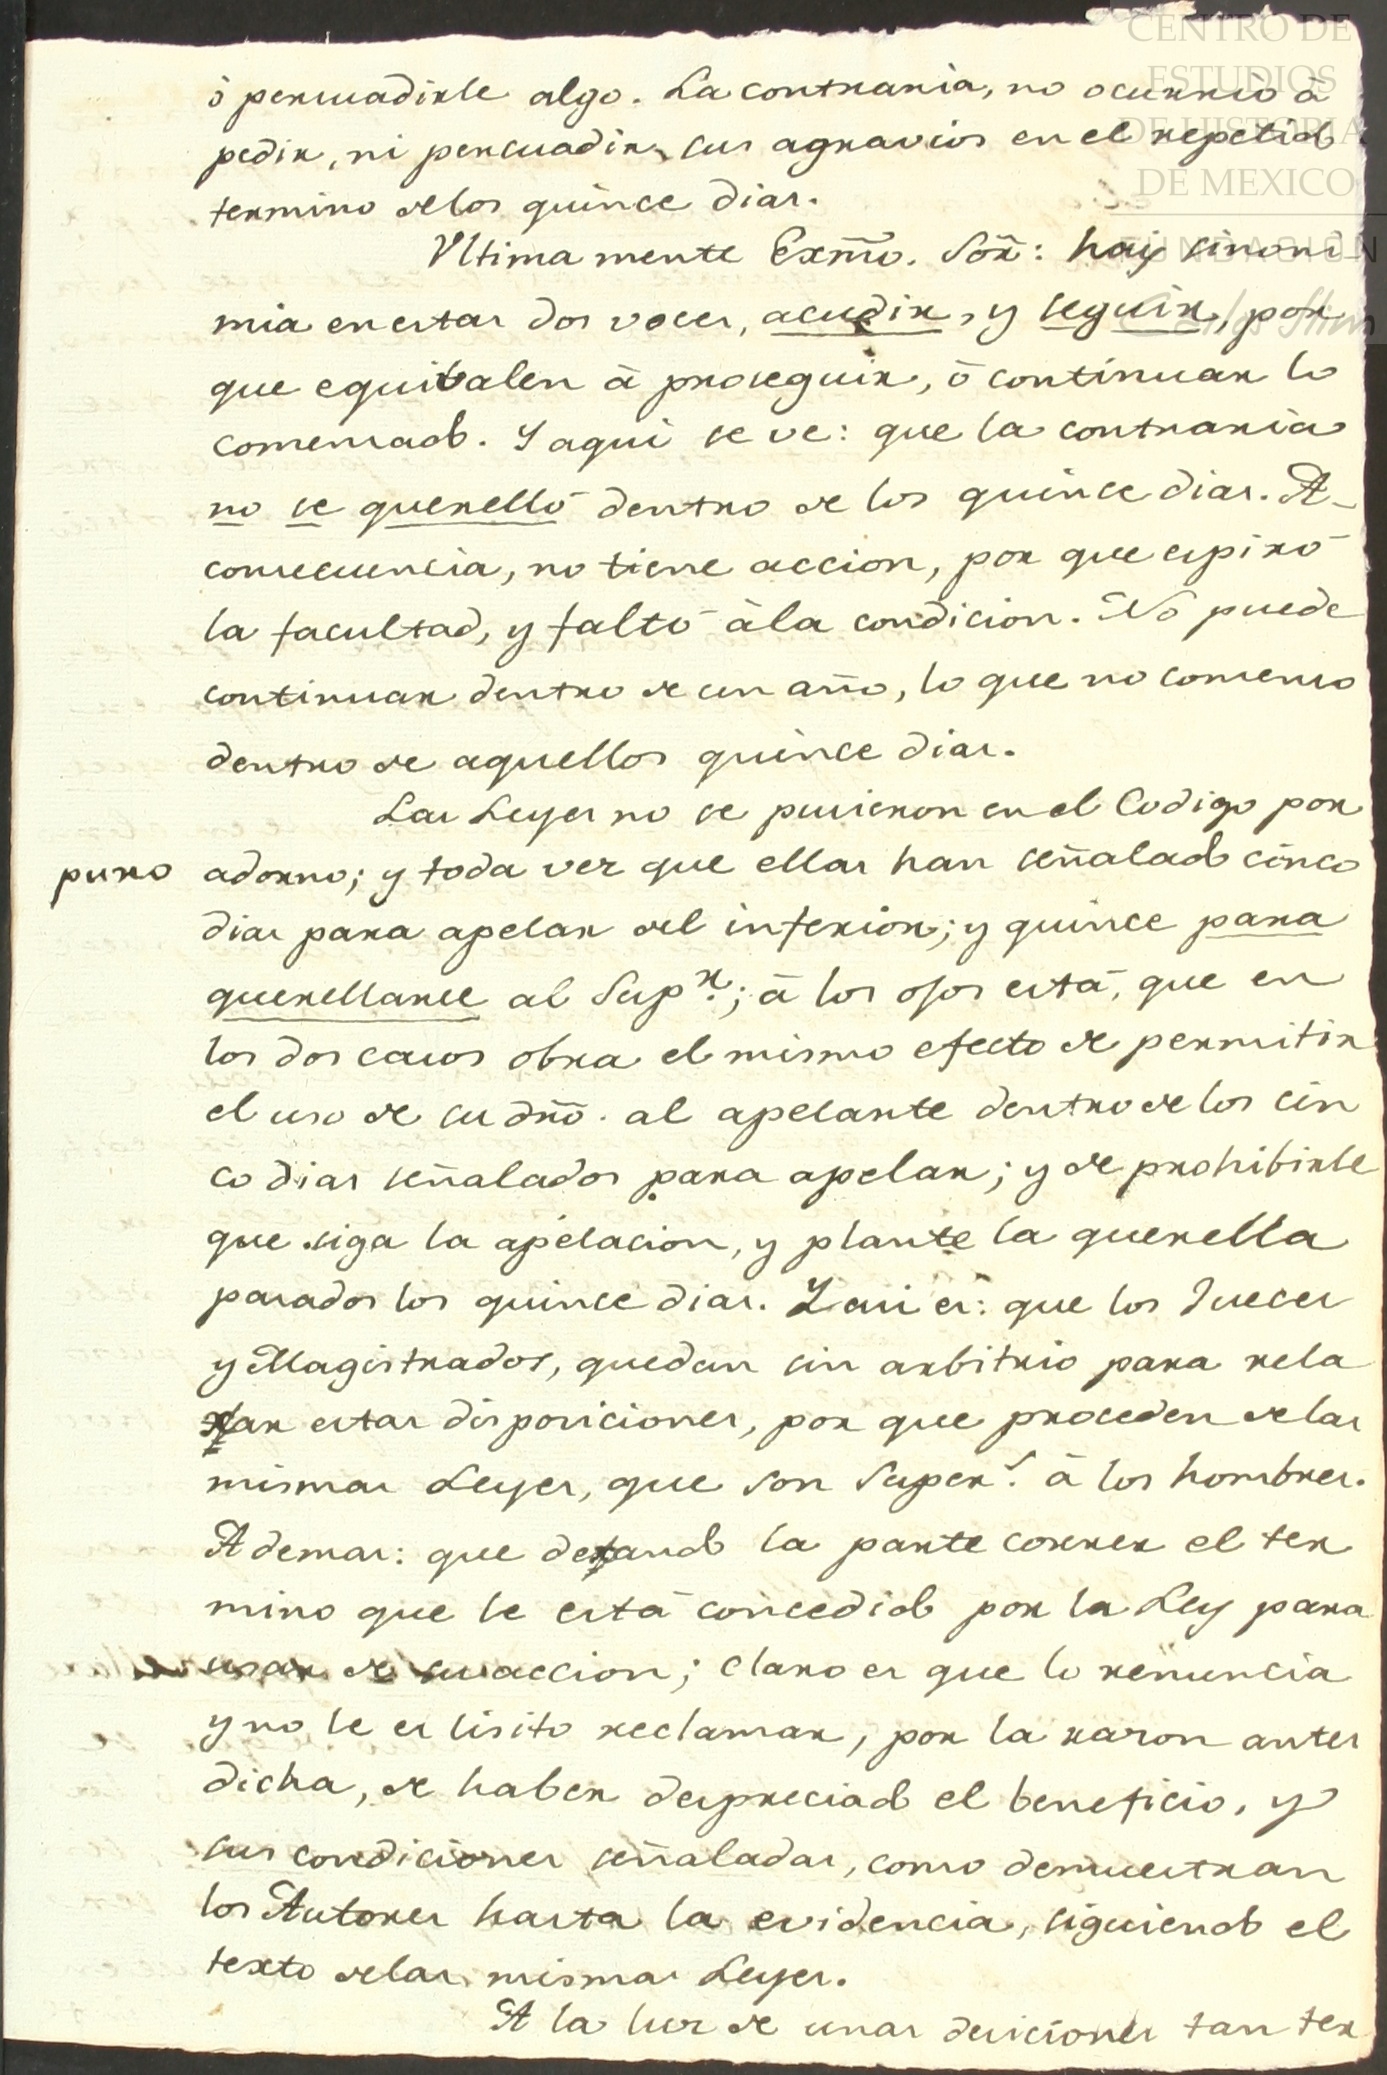 CENTRO DE
ESTUDIOS
DE HISTORIA
DE MEXICO
FUNDACIÓN
Carlos Slim
ò persuadirle algo. La contraria, no ocurrió à
pedir, ni persuadir, sus agravios en el repetido
termino de los quince dias.
Ultima mente Exm̃o. Sor̃: hay sinoni
mia en estas dos voces, acudir, y seguir, por
que equivalen à proseguir, ò continuar lo
comensado. Y aqui se ve: que la contraria
no se querelló dentro de los quince dias. A
consecuencia, no tiene accion, por que espiró
la facultad, y faltó à la condicion. No puede
continuar dentro de un año, lo que no comenso
dentro de aquellos quince dias.
Las Leyes no se pusieron en el Codigo por
puro adorno; y toda vez que ellas han señalado cinco
dias para apelar del inferior; y quince para
querellarse al Supr.; à los ojos està, que en
los dos casos obra el mismo efecto de permitir
el uso de su dr̃o. al apelante dentro de los cin
co dias señalados para apelar; y de prohibirle
que siga la apelacion, y plante la querella
pasados los quince dias. Y asi es: que los Jueces
y Magistrados, quedan sin arbitrio para rela
xar estas disposiciones, por que proceden de las
mismas Leyes, que son Supers. à los hombres.
Ademas: que dexando la parte correr el ter
mino que le està concedido por la Ley para
usar de su accion; claro es que lo renuncia
y no le es lisito reclamar, por la razon antes
dicha, de haber despreciado el beneficio, y
sus condiciones señaladas, como demuestran
los Autores hasta la evidencia, siguiendo el
texto de las mismas Leyes.
A la luz de unas desiciones tan ter